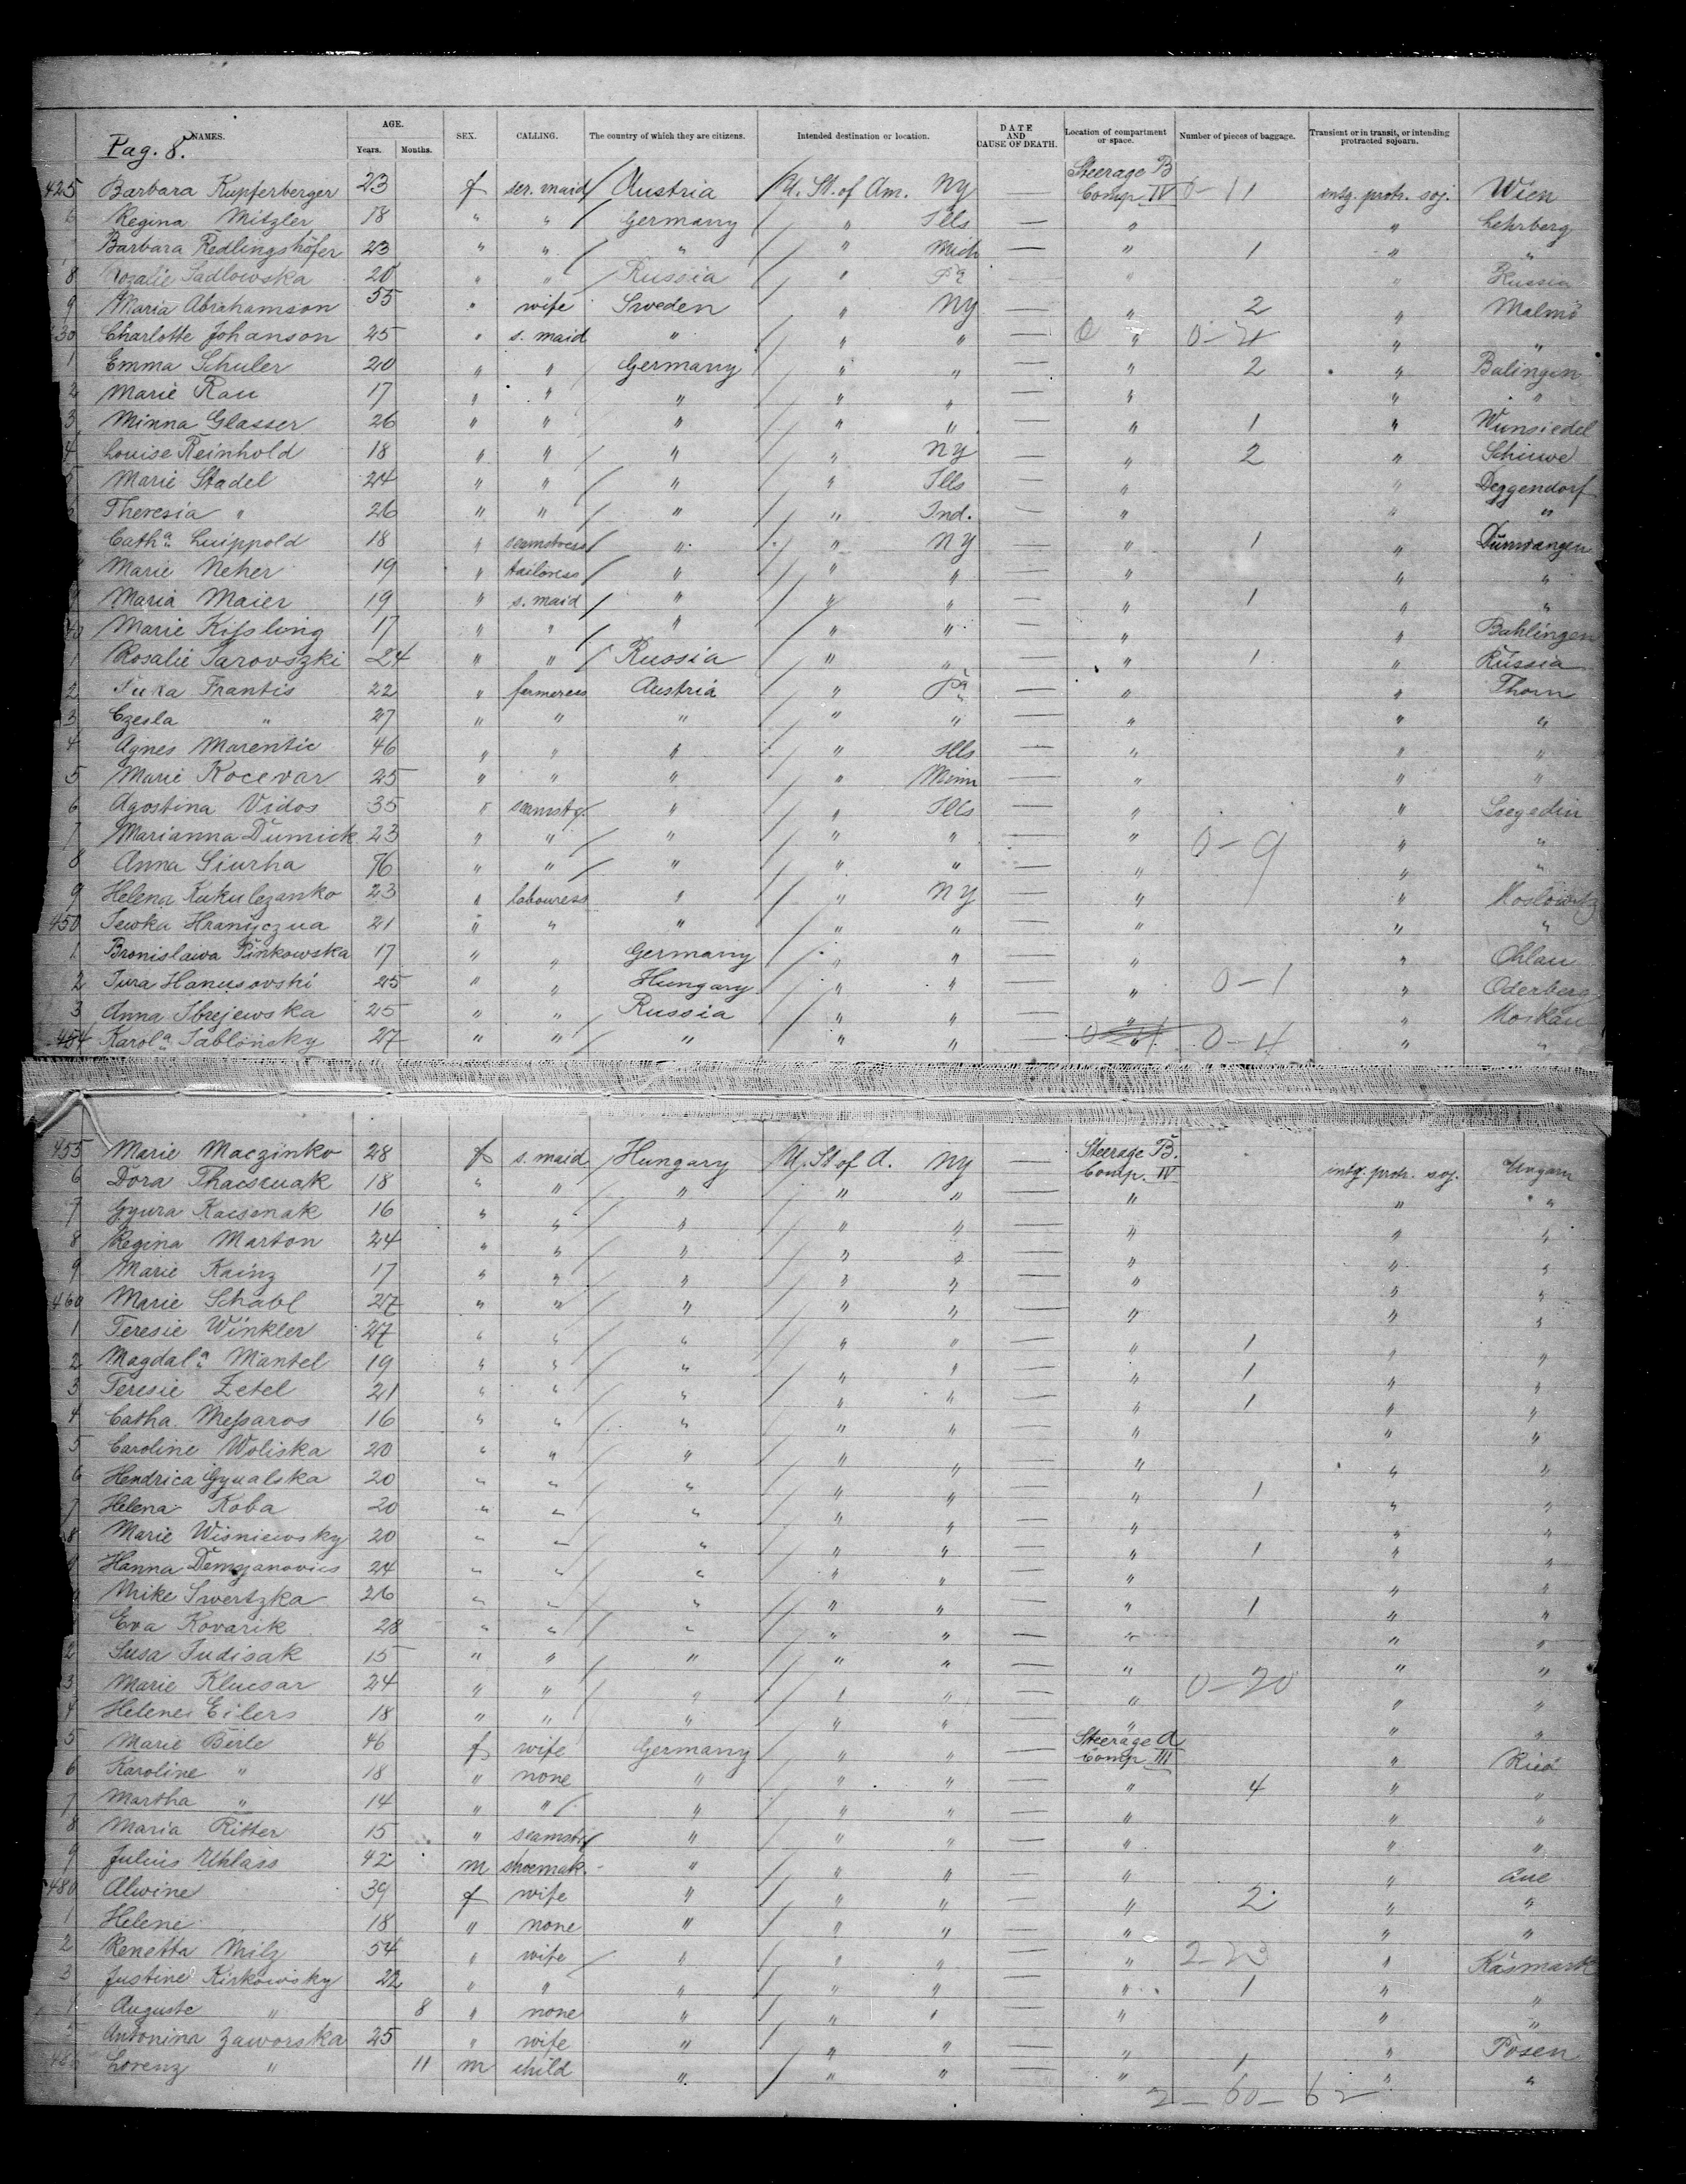 Pag. 8.
NAMES. AGE. Years. Months. SEX. CALLING. The country of which they are citizens. Intended destination or location. DATE AND CAUSE OF DEATH. Location of compartment or space. Number of pieces of baggage. Transient or in transit, or intending protracted sojourn.
425 Barbara Kupferberger 23 f ser. maid Austria U. St. of Am. NY — Steerage B Comp IV 0-11 intg. protr. soj. Wien
6 Regina Mitzler 18 " " Germany " Ills — " " Lehrberg
Barbara Redlingshöfer 23 " " " " Mich — " 1 " "
8 Rozalie Sadlowska 20 " " Russia " Pa " " Russia
9 Maria Abrahamson 55 " wife Sweden " NY — " 2 " Malmö
430 Charlotte Johanson 25 " s. maid " " " — 0 " 0-4 " "
1 Emma Schuler 20 " " Germany " " — " 2 " Balingen
2 Marie Rau 17 " " " " " — " " "
3 Minna Glasser 26 " " " " " — " 1 " Wunsiedel
4 Louise Reinhold 18 " " " " NY — " 2 "
5 Marie Stadel 24 " " " " Ills — " " Deggendorf
6 Theresia " 26 " " " " Ind. — " " "
Catha Luippold 18 " seamstress " " NY — " 1 " Dürrwangen
Marie Neher 19 " tailoress " " " — " " "
9 Maria Maier 19 " s. maid " " " — " 1 " "
40 Marie Kissling 17 " " " " " — " " Bahlingen
1 Rosalie Sarovszki 24 " " Russia " " — " 1 " Russia
2 Frantis 22 " farmeress Austria " Pa — " " Thorn
3 Czesla " 27 " " " " " — " " "
4 Agnes Marentic 46 " " " " Ills — " " "
5 Marie Kocevar 25 " " " " Minn — " " "
6 Agostina Vidos 35 " seamstr. " " Ills — " " Szegedin
7 Marianna Dumick 23 " " " " " — " 0-9 " "
8 Anna Siurha 76 " " " " " — " " "
9 Helena Kukulezanko 23 " labouress " " NY — " "
450 Tewka Hranyczua 21 " " " " " — " " "
1 Bronislawa Pinkowska 17 " " Germany " " — " " Ohlau
2 Jura Hanusovski 25 " " Hungary " " — " 0-1 " Oderberg
3 Anna 25 " " Russia " " — " " Moskau
454 Karola Jablonsky 27 " " " " " — " 0-4 " "
455 Marie Maczinko 28 f s. maid Hungary U. St of A. NY — Steerage B. Comp. IV intg. protr. soj. Ungarn
6 Dora 18 " " " " " — " " "
7 Gyura Kacsenak 16 " " " " " — " " "
8 Regina Marton 24 " " " " " — " " "
9 Marie Kainz 17 " " " " " — " " "
460 Marie Schabl 27 " " " " " — " " "
1 Teresie Winkler 27 " " " " " — " 1 " "
2 Magdala Mantel 19 " " " " " — " 1 " "
3 Teresie Zetel 21 " " " " " — " 1 " "
4 Catha Messaros 16 " " " " " — " " "
5 Caroline Woliska 20 " " " " " — " " "
6 Hendrica Gyualska 20 " " " " " — " 1 " "
7 Helena Koba 20 " " " " " — " " "
8 Marie Wisniewsky 20 " " " " " — " 1 " "
9 Hanna Demsjanovics 24 " " " " " — " " "
Mike Swertzka 26 " " " " " — " 1 " "
Eva Kovarik 28 " " " " " — " " "
2 Susa Judisak 15 " " " " " — " " "
3 Marie Klucsar 24 " " " " " — " 0-20 " "
4 Helene Eilers 18 " " " " " — " " "
5 Marie Berle 46 f wife Germany " " — Steerage A Comp III " Ried
6 Karoline " 18 " none " " " — " 4 " "
7 Martha " 14 " " " " " — " " "
8 Maria Ritter 15 " seamstr " " " — " " "
9 Julius Uhlass 42 m shoemak. " " " — " " Aue
480 Alwine 39 f wife " " " — " 2 " "
1 Helene 18 " none " " " — " " "
2 Renetta Milz 54 " wife " " " — " 2-23 " Käsmark
3 Justine Kirkowsky 22 " " " " " — " 1 " "
4 Auguste " 8 " none " " " — " " "
5 Antonina Zaworska 25 " wife " " " — " 1 " Posen
486 Lorenz " 11 m child " " " — " " "
2-60-62